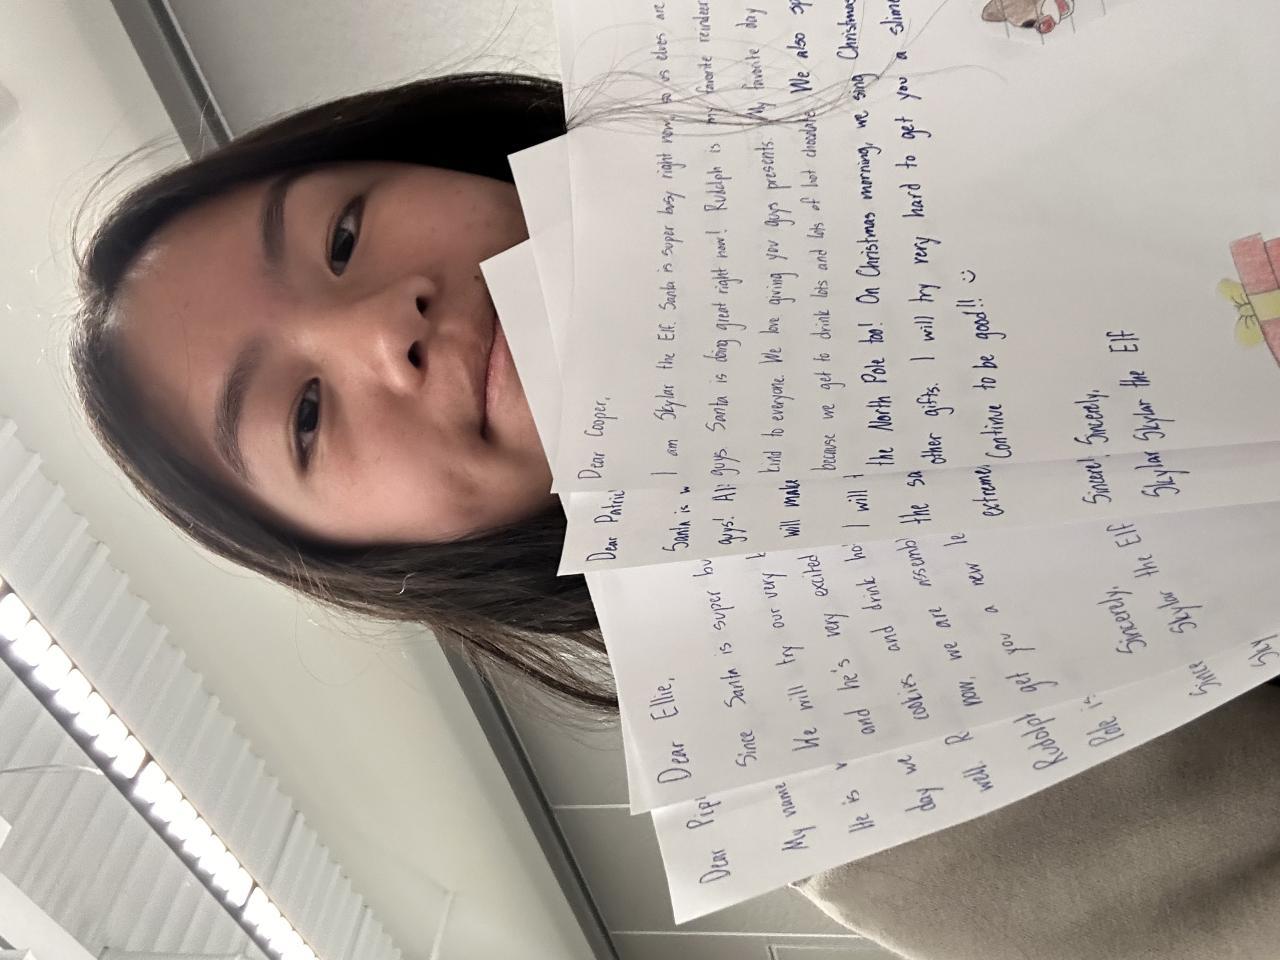 Dear Cooper,
I am Skylar the Elf. Santa is super busy right now, so us elves are
guys! Santa is doing great right now! Rudolph is my favorite reindeer
kind to everyone. We love giving you guys presents. My favorite day
because we get to drink lots and lots of hot chocolate. We also
the North Pole too! On Christmas morning, we sing Christmas
other gifts. I will try very hard to get you a slime
Continue to be good!! :)
Sincerely,
Skylar the Elf
Dear Patric
Santa is w
guys! Al
will make
I will
the sa
extreme
Sincerel
Skylar
Dear Ellie,
Since Santa is super bu
We will try our very
and he's very excited
cookies and drink ho
now, we are assemb
get you a new le
Sincerely,
Skylar the Elf
Dear Pip
My name
He is
day we
well. R
Rudolph
Pole is
Since
Sky